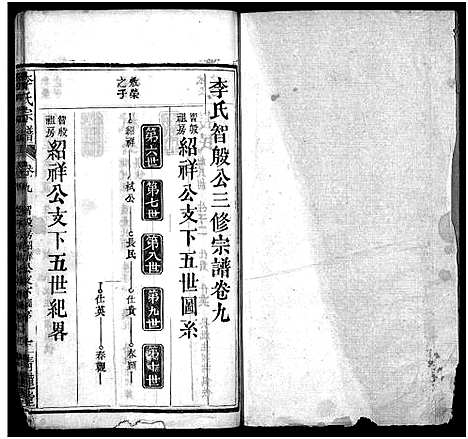 李氏智殷公三修宗譜卷九
智殷祖房紹祥公支下五世圖系
第六世
第七世
第八世
第九世
第十世
教榮之子
紹祥
栻公
長民
仕貴
春顯
仕英
春觀
智殷祖房紹祥公支下五世紀畧
李氏宗譜
卷九